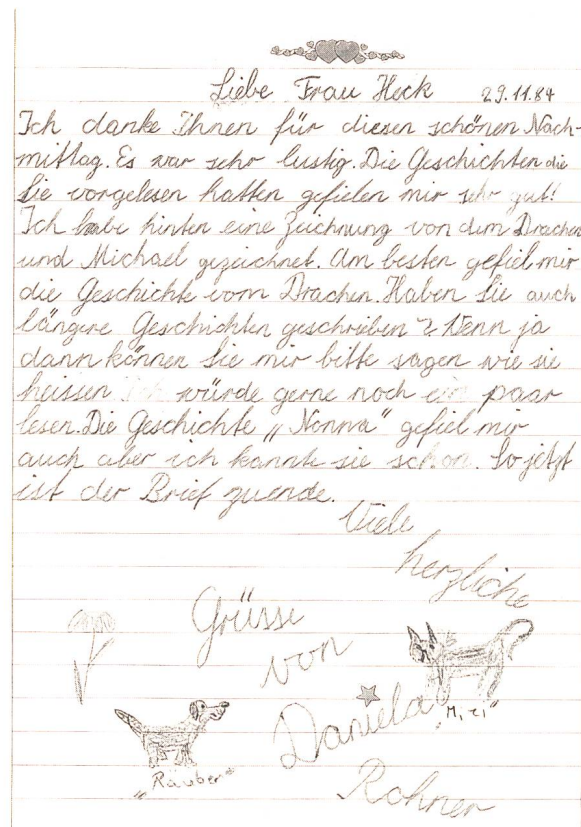 Liebe Frau Heck 29.11.84
Ich danke Ihnen für diesen schönen Nach-
mittag. Es war sehr lustig. Die Geschichten die
Sie vorgelesen hatten gefielen mir sehr gut!
Ich habe hinten eine Zeichnung von dem Drachen
und Michael gezeichnet. Am besten gefiel mir
die Geschichte vom Drachen. Haben Sie auch
längere Geschichten geschrieben? Wenn ja
dann können Sie mir bitte sagen wie sie
heissen ich würde gerne noch ein paar
lesen. Die Geschichte „Nonna“ gefiel mir
auch aber ich kannte sie schon. So jetzt
ist der Brief zuende.
Viele
herzliche
Grüsse
von
Daniela
Rohner
„Räuber“
„Mizi“